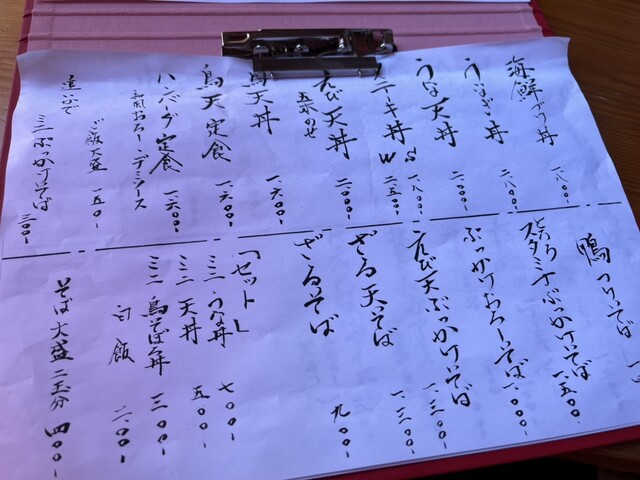 海鮮づくり丼 一八〇〇-
うなぎ丼 二八〇〇-
うな天丼 二〇〇〇-
ステーキ丼 S 一八〇〇- W 二五〇〇-
えび天丼 二〇〇〇-
五本のせ
鳥天丼 一六〇〇-
鳥天定食 一六〇〇-
ハンバーグ定食 一六〇〇-
和風おろし・デミソース
ご飯大盛 一五〇-
追加で
ミニぶっかけそば 三〇〇-
鴨つけそば
とろろ
スタミナぶっかけそば 一五〇〇-
ぶっかけおろしそば 一〇〇〇-
えび天ぶっかけそば 一三〇〇-
ざる天そば 一二〇〇-
ざるそば 九〇〇-
「セット」
ミニうな丼 七〇〇-
ミニ天丼 五〇〇-
ミニ鳥そぼろ丼 三〇〇-
白飯 二〇〇-
そば大盛二玉分 四〇〇-